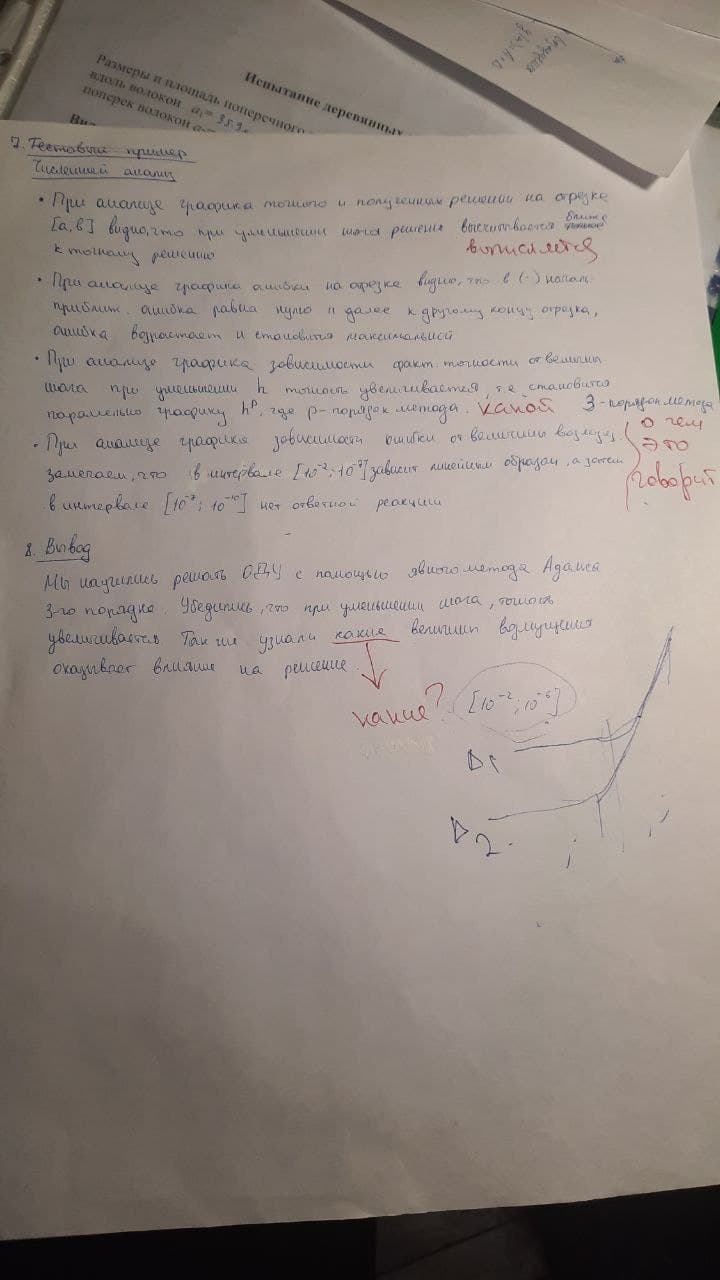 Испытание деревянных
Размеры и площадь поперечного
вдоль волокон a₁ = 35.9
поперек волокон
7. Тестовый пример
Численный анализ
• При анализе графика точного и полученных решений на отрезке
[a, b] видно, что при уменьшении шага решение высчитывается ближе
вычисляется
к точному решению
• При анализе графика ошибки на отрезке видно, что в (·) начал.
приближ. ошибка равна нулю и далее к другому концу отрезка,
ошибка возрастает и становится максимальной
• При анализе графика зависимости факт. точности от величины
шага при уменьшении h точность увеличивается, т.е. становится
параллельно графику hᵖ, где p - порядок метода. какой 3 - порядок метода
• При анализе графика зависимости ошибки от величины возмущ.
замечаем, что в интервале [10⁻²; 10⁻⁷] зависит линейным образом, а затем
в интервале [10⁻⁷; 10⁻¹⁰] нет ответной реакции
о чем
это
говорит
8. Вывод
Мы научились решать ОДУ с помощью явного метода Адамса
3-го порядка. Убедились, что при уменьшении шага, точность
увеличивается. Так же узнали какие величин возмущения
оказывает влияние на решение.
какие? [10⁻²; 10⁻⁶]
Δ1
Δ2.